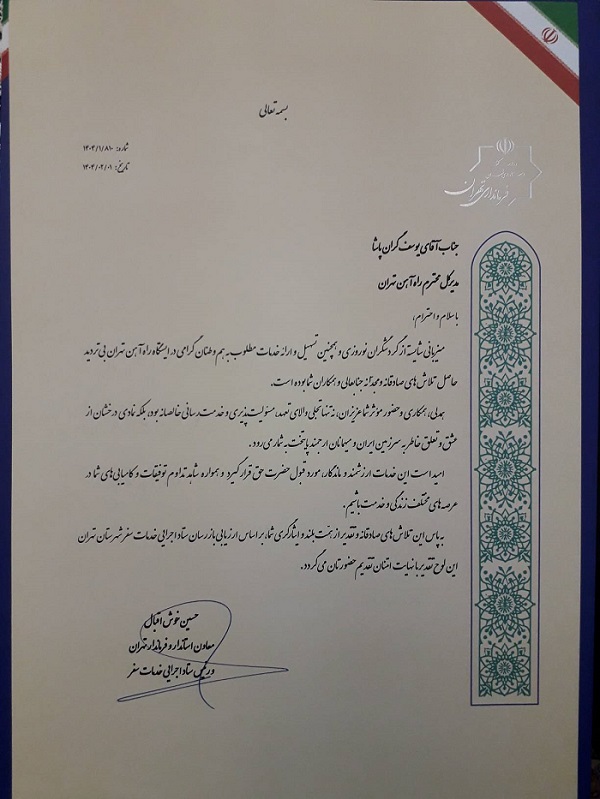 بسمه تعالی
شماره: ۱۴۰۴/۱/۸۱۰
تاریخ: ۱۴۰۴/۰۲/۰۱
فرمانداری تهران
جناب آقای یوسف گران پاشا
مدیرکل محترم راه آهن تهران
با سلام و احترام،
میزبانی شایسته از گردشگران نوروزی و همچنین تسهیل و ارائه خدمات مطلوب به هم وطنان گرامی در ایستگاه راه آهن تهران بی تردید
حاصل تلاش های صادقانه و مجدّانه جنابعالی و همکاران شما بوده است.
همدلی، همکاری و حضور مؤثر شما عزیزان، نه تنها تجلی والای تعهد، مسئولیت پذیری و خدمت رسانی خالصانه بود، بلکه نمادی درخشان از
عشق و تعلق خاطر به سرزمین ایران و میهمانان ارجمند پایتخت به شمار می رود.
امید است این خدمات ارزشمند و ماندگار، مورد قبول حضرت حق قرار گیرد و همواره شاهد تداوم توفیقات و کامیابی های شما در
عرصه های مختلف زندگی و خدمت باشیم.
به پاس این تلاش های صادقانه و تقدیر از همّت بلند و ایثارگری شما، بر اساس ارزیابی بازرسان ستاد اجرایی خدمات سفر شهرستان تهران
این لوح تقدیر با نهایت امتنان تقدیم حضورتان می گردد.
حسین خوش اقبال
معاون استاندار و فرماندار تهران
و رئیس ستاد اجرایی خدمات سفر